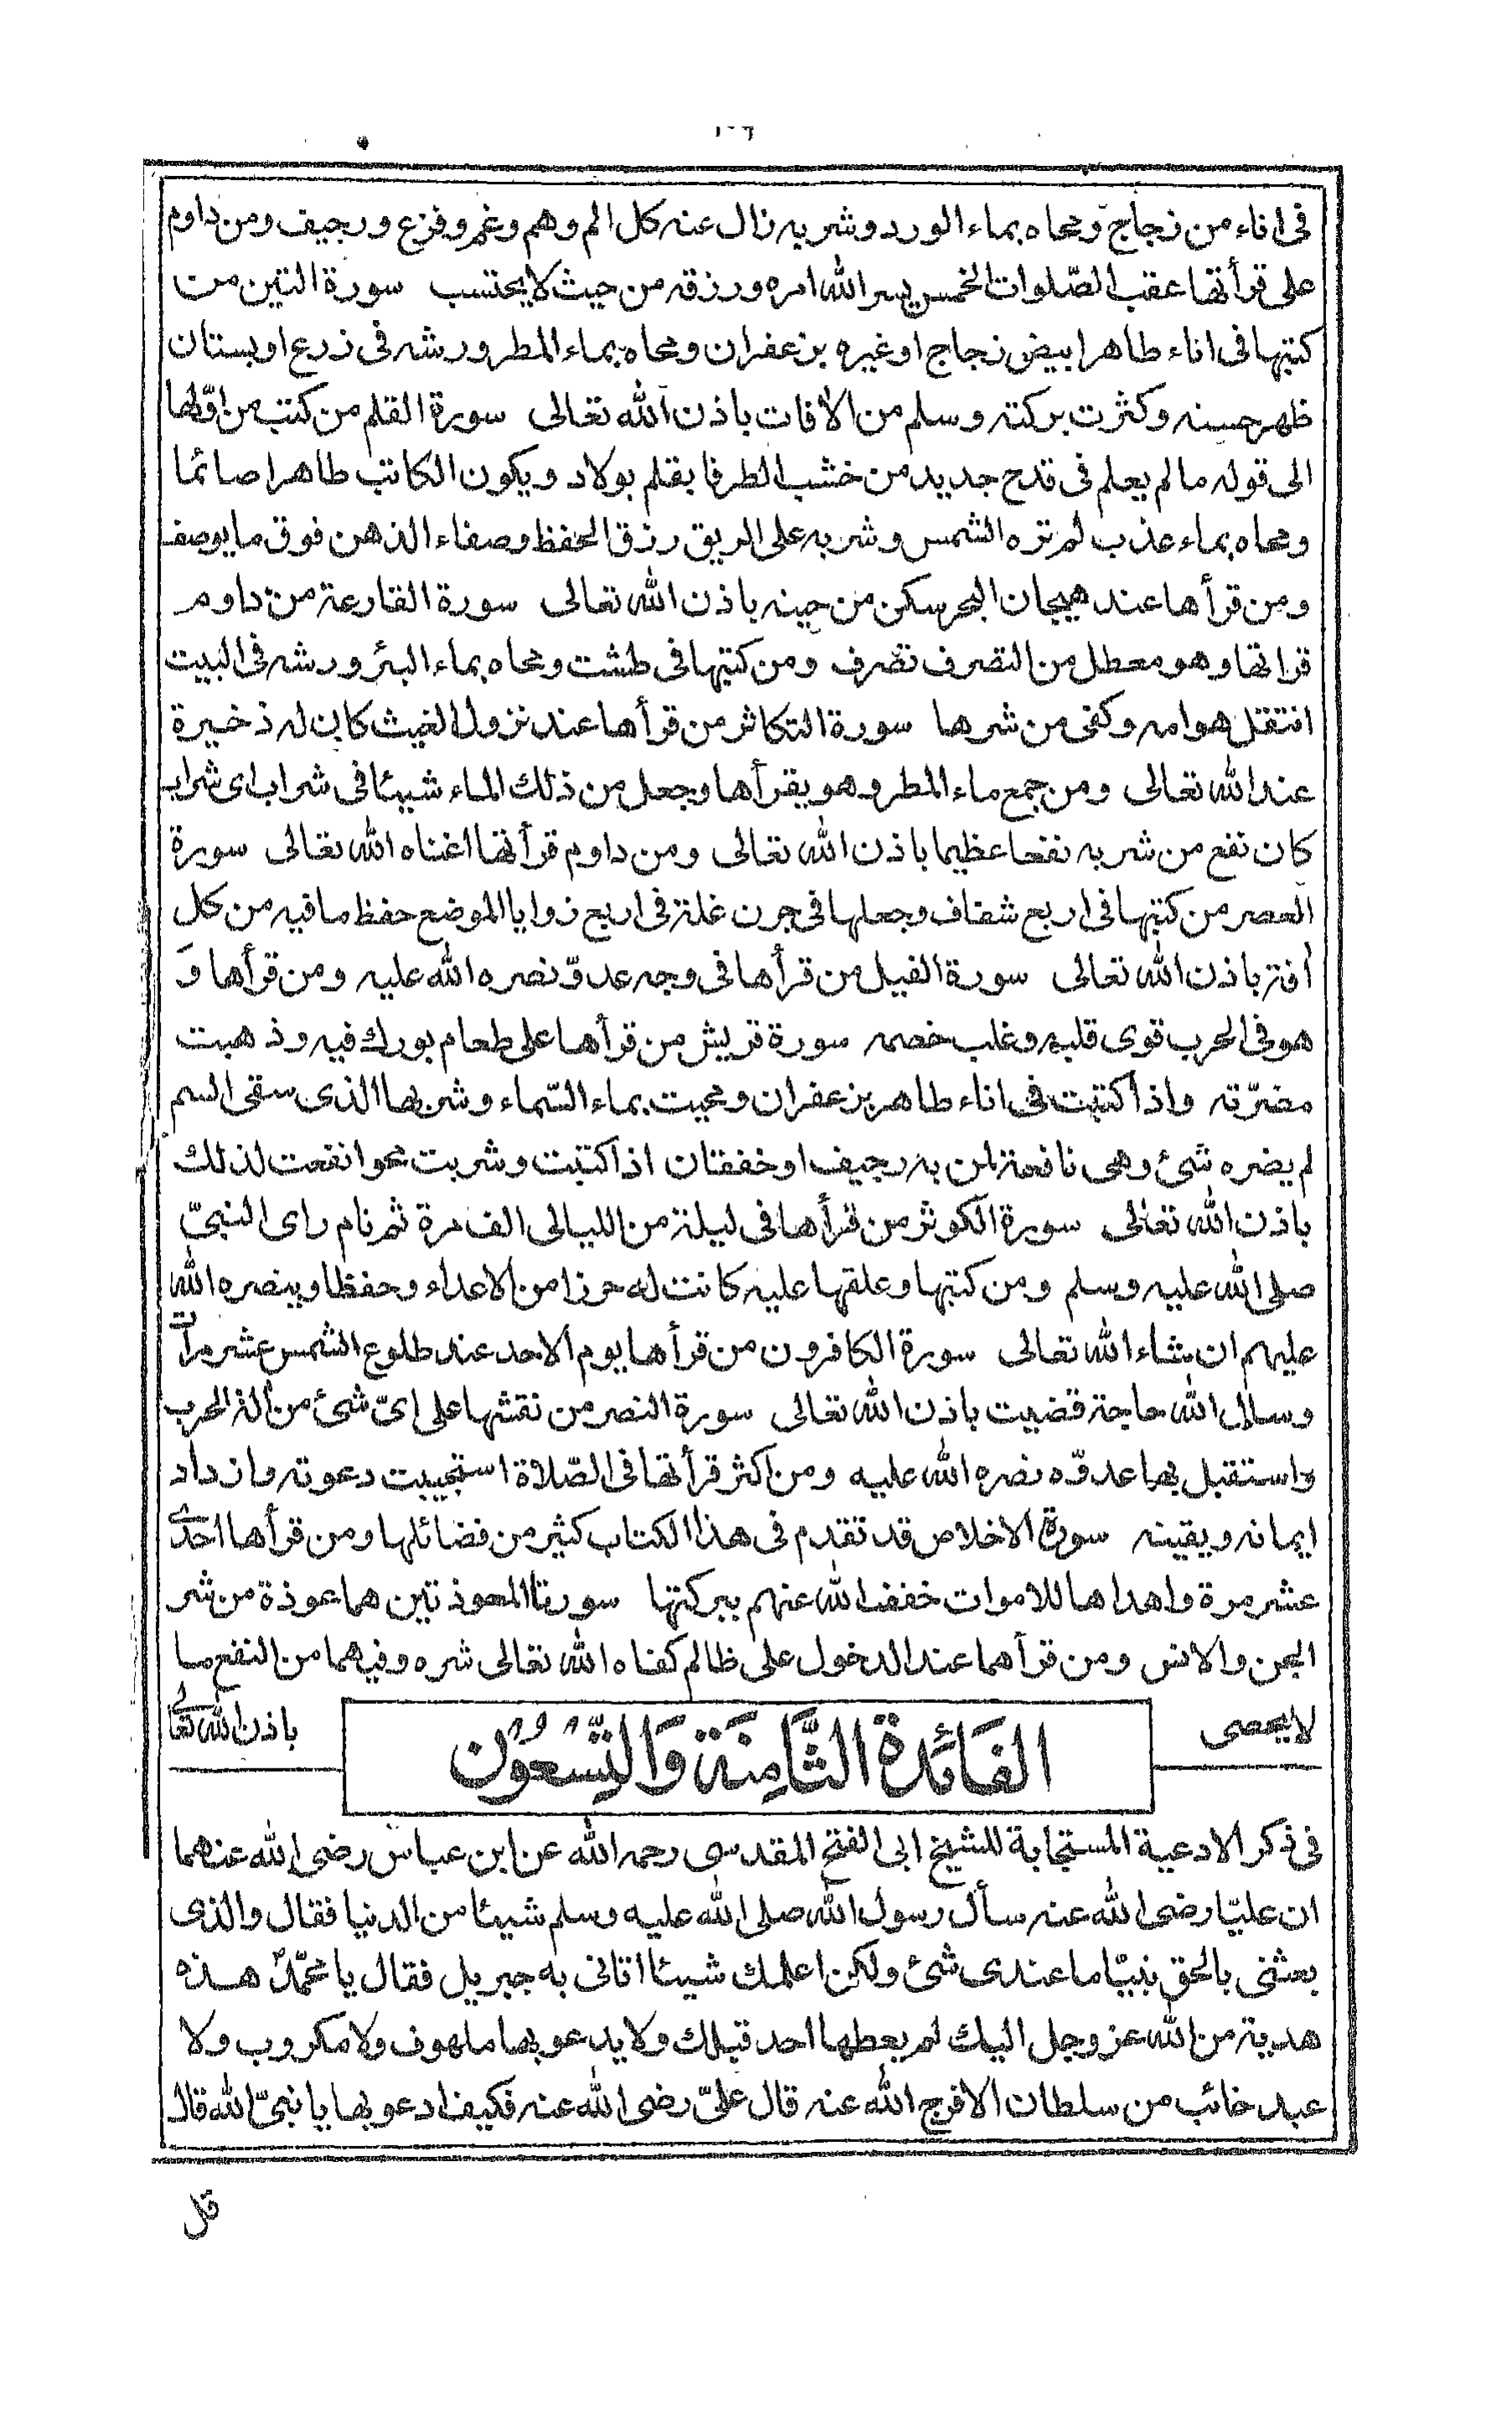 فى اناء من زجاج ومحاه بماء الورد وشربه زال عنه كل الم وهم وغم وفزع ورجيف ومن داوم
على قرأتها عقب الصّلوات الخمس يسر الله امره ورزقه من حيث لا يحتسب سورة التين من
كتبها فى اناء طاهر ابيض زجاج او غيره بزعفران ومحاه بماء المطر ورشه فى زرع او بستان
ظهر حسنه وكثرت بركته وسلم من الآفات باذن الله تعالى سورة القلم من كتب من اوّلها
الى قوله مالم يعلم فى قدح جديد من خشب الطرفا بقلم بولاد ويكون الكاتب طاهرا صائما
ومحاه بماء عذب لم تره الشمس وشربه على الريق رزق الحفظ وصفاء الذهن فوق ما يوصف
ومن قرأها عند هيجان البحر سكن من حينه باذن الله تعالى سورة القارعة من داوم
قراتها وهو معطل من التصرف تصرف ومن كتبها فى طشت ومحاه بماء البئر ورشه فى البيت
انتقل هوامه وكفى من شرها سورة التكاثر من قرأها عند نزول الغيث كان له ذخيرة
عند الله تعالى ومن جمع ماء المطر وهو يقرأها وجعل من ذلك الماء شيئا فى شراب اى شراب
كان نفع من شربه نفعا عظيما باذن الله تعالى ومن داوم قرأتها اغناه الله تعالى سورة
العصر من كتبها فى اربع شقاف وجعلها فى جرن غلة فى اربع زوايا الموضع حفظ ما فيه من كل
أفة باذن الله تعالى سورة الفيل من قرأها فى وجه عدوّ نصره الله عليه ومن قرأها وَ
هو فى الحرب قوى قلبه وغلب خصمه سورة قريش من قرأها على طعام بورك فيه وذهبت
مضرّته واذا كتبت فى اناء طاهر بزعفران ومحيت بماء السّماء وشربها الذى سقى السم
لم يضره شئ وهى نافعة لمن به رجيف او خفقان اذا كتبت وشربت محوا نفعت لذلك
باذن الله تعالى سورة الكوثر من قرأها فى ليلة من الليالى الف مرة ثم نام راى النبىّ
صلى الله عليه وسلم ومن كتبها وعلقها عليه كانت له حرزا من الاعداء وحفظا وينصره الله
عليهم ان شاء الله تعالى سورة الكافرون من قرأها يوم الاحد عند طلوع الشمس عشر مرات
وسال الله حاجة قضيت باذن الله تعالى سورة النصر من نقشها على اىّ شئ من ألة الحرب
واستقبل بها عدوّه نصره الله عليه ومن اكثر قرأتها فى الصّلاة استجيبت دعوته وازداد
ايمانه ويقينه سورة الاخلاص قد تقدم فى هذا الكتاب كثير من فضائلها ومن قرأها احدى
عشر مرة واهداها للاموات خفف الله عنهم ببركتها سورتا المعوذتين هما عوذة من شر
الجن والانس ومن قرأهما عند الدخول على ظالم كفاه الله تعالى شره وفيهما من النفع ما
لا يحصى باذن الله تعا
الفَائدة الثَّامِنَة وَالتِّسْعُوُن
فى ذكر الادعية المستجابة للشيخ ابى الفتح المقدسى رحمه الله عن ابن عباس رضى الله عنهما
ان عليّا رضى الله عنه سأل رسول الله صلى الله عليه وسلم شيئا من الدنيا فقال والذى
بعثنى بالحق نبيّا ما عندى شئ ولكن اعلمك شيئا اتانى به جبريل فقال يا محمّدُ هذه
هدية من الله عز وجل اليك لم يعطها احد قبلك ولا يدعو بها ملهوف ولا مكروب ولا
عبد خائب من سلطان الا فرج الله عنه قال علىّ رضى الله عنه فكيف ادعو بها يا نبىّ الله قال
قل